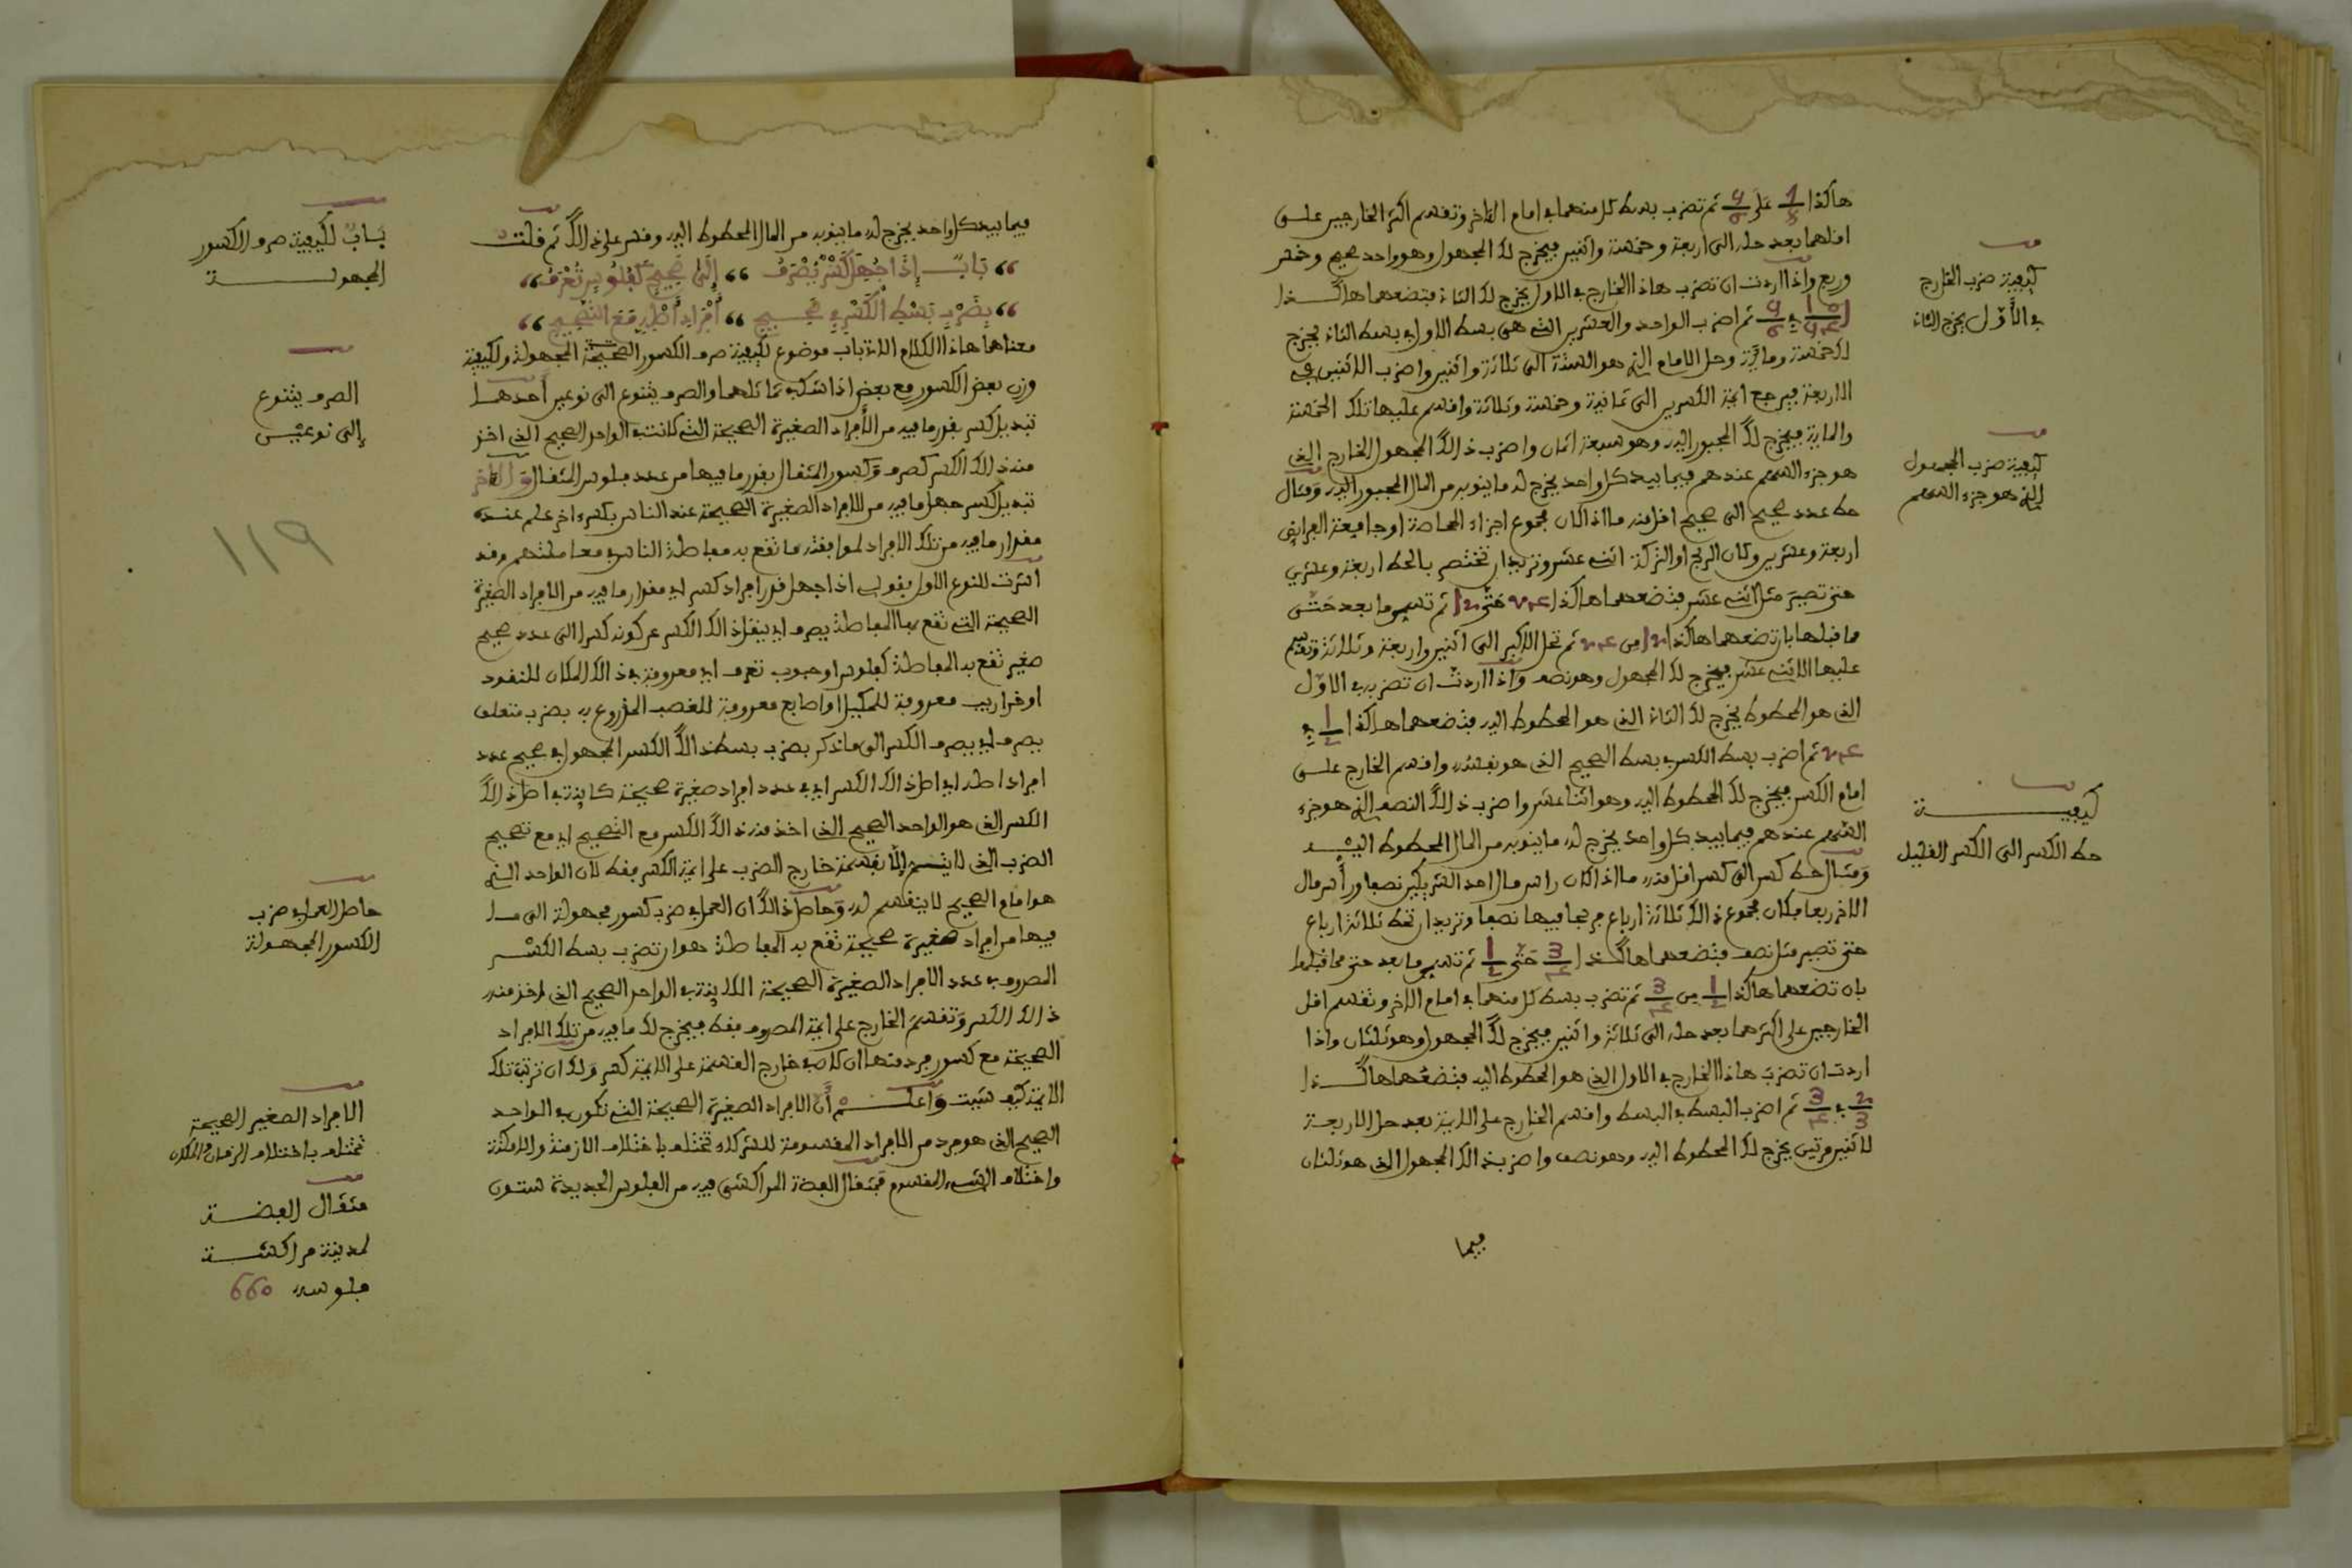 هاكذا 7/8 على 9/5 ثم تضرب بسط كل منهما في امام الاخر وتقسم اكثر الخارجين على
اقلهما بعد حله الى اربعة وخمسة واثنين فيخرج لك المجهول وهو واحد صحيح وخمس
وربع واذا اردت ان تضرب هاذا الخارج في الاول يخرج لك الثاني فتضعهما هاكذا
ثم اضرب الواحد والعشرين التي هي بسط الاول في بسط الثاني يخرج
لك خمسة ومائة وحل الامام الذي هو الستة الى ثلاثة واثنين واضرب الاثنين في
الاربعة فيرجع ايمة الكسرين الى ثمانية وخمسة وثلاثة واقسم عليها تلك الخمسة
والماية فيخرج لك المجبور اليه وهو سبعة اثمان واضرب ذالك المجهول الخارج الذي
هو جزء السهم عندهم فيما بيد كل واحد يخرج له ما ينوبه من المال المجبور اليه ومثال
حط عدد صحيح الى صحيح اقل منه ما اذا كان مجموع اجزاء المحاصة او جامعة الفرايض
اربعة وعشرين وكان الربح او التركة اثنى عشر وتريد ان تختصر بالحط اربعة وعشرين
حتى تصير مثل اثنى عشر فتضعهما هاكذا 24 حتى 12 ثم تقسم ما بعد حتى
ما قبلها بان تضعهما هاكذا 12 من 24 ثم تحل الاكبر الى اثنين واربعة وثلاثة وتقسم
عليها الاثنى عشر فيخرج لك المجهول وهو نصف واذا اردت ان تضربه في الاول
الذي هو المحطوط يخرج لك الثاني الذي هو المحطوط اليه فتضعهما هاكذا 1/2 في
24 ثم اضرب بسط الكسر في بسط الصحيح الذي هو نفسه واقسم الخارج على
امام الكسر فيخرج لك المحطوط اليه وهو اثنا عشر واضرب ذالك النصف الذي هو جزء
السهم عندهم فيما بيد كل واحد يخرج له ما ينوبه من المال المحطوط اليه
ومثال حط كسر الى كسر اقل منه ما اذا كان راس مال احد الشريكين نصفا ورأس مال
الاخر ربعا فكان مجموع ذالك ثلاثة ارباع فربحا فيها نصفا وتريد ان تحط ثلاثة ارباع
حتى تصير مثل نصف فتضعهما هاكذا 3/4 حتى 1/2 ثم تقسم ما بعد حتى مما قبلها
بان تضعهما هاكذا 1/2 من 3/4 ثم تضرب بسط كل منهما في امام الاخر وتقسم اقل
الخارجين على اكثرهما بعد حله الى ثلاثة واثنين فيخرج لك المجهول وهو ثلثان واذا
اردت ان تضرب هاذا الخارج في الاول الذي هو المحطوط اليه فتضعهما هاكذا
2/3 في 3/4 ثم اضرب البسط في البسط واقسم الخارج على الايمة بعد حل الاربعة
لاثنين مرتين يخرج لك المحطوط اليه وهو نصف واضرب ذالك المجهول الذي هو ثلثان
فيما
كيفية ضرب الخارج
في الأول يخرج الثاني
كيفية ضرب المجهول
الذي هو جزء السهم
كيفية
حط الكسر الى الكسر القليل
فيما بيد كل واحد يخرج له ما ينوبه من المال المحطوط اليه وقس على ذالك ثم قلت
باب إذا جهل كسر يصرف إلى صحيح كفلوس تعرف
بضرب بسط الكسر في صحيح أفراد أصله مع التصحيح
معناها هاذا الكلام الاتي باب موضوع لكيفية صرف الكسور الصحيحة المجهولة ولكيفية
وزن بعض الكسور مع بعض اذا شك في تماثلهما والصرف يتنوع الى نوعين أحدهما
تبديل كسر بقدر ما فيه من الأفراد الصغيرة الصحيحة التي كانت في الواحد الصحيح الذي اخذ
منه ذالك الكسر كصرف كسور المثقال بقدر ما فيها من عدد فلوس المثقال والاخر
تبديل كسر جهل ما فيه من الافراد الصغيرة الصحيحة عند الناس بكسر اخر علم عنده
مقدار ما فيه من تلك الافراد لموافقته ما تقع به معاطة الناس في معاملتهم وقد
اشرت للنوع الاول بقولي اذا جهل قدر افراد كسر اي مقدار ما فيه من الافراد الصغيرة
الصحيحة التي تقع بها المعاطة يصرف اي ينقل ذالك الكسر عن كونه كسرا الى عدد صحيح
صغير تقع به المعاطة كفلوس او حبوب تعرف اي معروفة في ذالك المكان للنقود
او قراريب معروفة للمكيل او اصابع معروفة للقصب المذروع به بضرب متعلق
بيصرف اي يصرف الكسر الى ما ذكر بضرب بسط ذالك الكسر المجهول في صحيح عدد
افراد اصله اي اصل ذالك الكسر اي في عدد افراد صغيرة صحيحة كاينة في اصل ذالك
الكسر الذي هو الواحد الصحيح الذي اخذ منه ذالك الكسر مع التصحيح اي مع تصحيح
الضرب الذي لا يتم إلا بقسمة خارج الضرب على ايمة الكسر فقط لان الواحد الذي
هو امام الصحيح لا ينقسم له وحاصل ذالك ان العمل في ضرب كسور مجهولة الى ما
فيها من افراد صغيرة صحيحة تقع به المعاطة هو ان تضرب بسط الكسر
المصروف في عدد الافراد الصغيرة الصحيحة الكاينة في الواحد الصحيح الذي اخذ منه
ذالك الكسر وتقسم الخارج على ايمة المصروف فقط فيخرج لك ما فيه من تلك الافراد
الصحيحة مع كسور فرد منها ان كان في خارج القسمة على الايمة كسر ولك ان ترتب تلك
الايمة كيف شئت واعلم أن الافراد الصغيرة الصحيحة التي تكون في الواحد
الصحيح الذي هو فرد من الافراد المقسومة للشركاء تختلف باختلاف الازمنة والامكنة
واختلاف الشيء المقسوم فمثقال الفضة المراكشي فيه من الفلوس الجديدة ستون
باب لكيفية صرف الكسور
المجهولة
الصرف يتنوع
إلى نوعين
١١٩
حاصل العمل في ضرب
الكسور المجهولة
الافراد الصغير الصحيحة
تختلف باختلاف الزمان والمكان
مثقال الفضة
لمدينة مراكشة
فلوسه 660